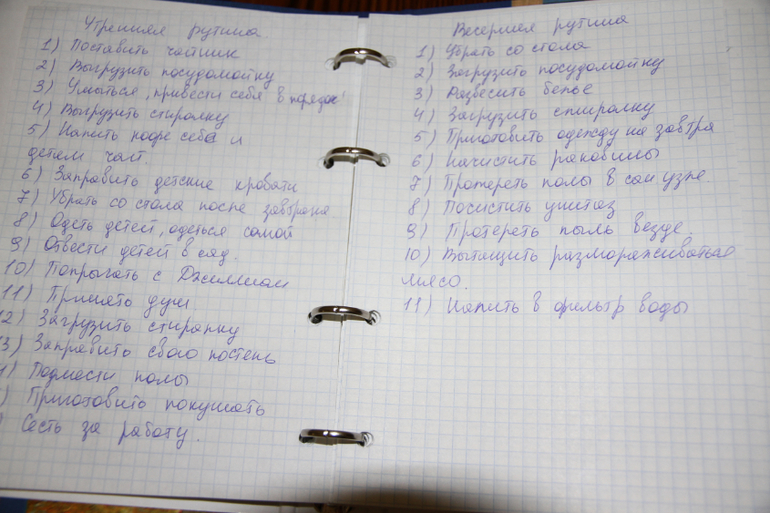 Утренняя рутина.
1) Поставить чайник
2) Выгрузить посудомойку
3) Умыться, привести себя в порядок
4) Выгрузить стиралку
5) Налить кофе себе и
детям чай.
6) Заправить детские кровати
7) Убрать со стола после завтрака
8) Одеть детей, одеться самой
9) Отвести детей в сад.
10) Попрыгать с Джиллиан
11) Принять душ
12) Загрузить стиралку
13) Заправить свою постель
) Подмести полы
) Приготовить покушать
Сесть за работу.
Вечерняя рутина
1) Убрать со стола
2) Загрузить посудомойку
3) Развесить белье
4) Загрузить стиралку
5) Приготовить одежду на завтра
6) Начистить раковины
7) Протереть полы в сан узле
8) Почистить унитаз
9) Протереть пыль везде.
10) Вытащить размораживаться
мясо.
11) Налить в фильтр воды